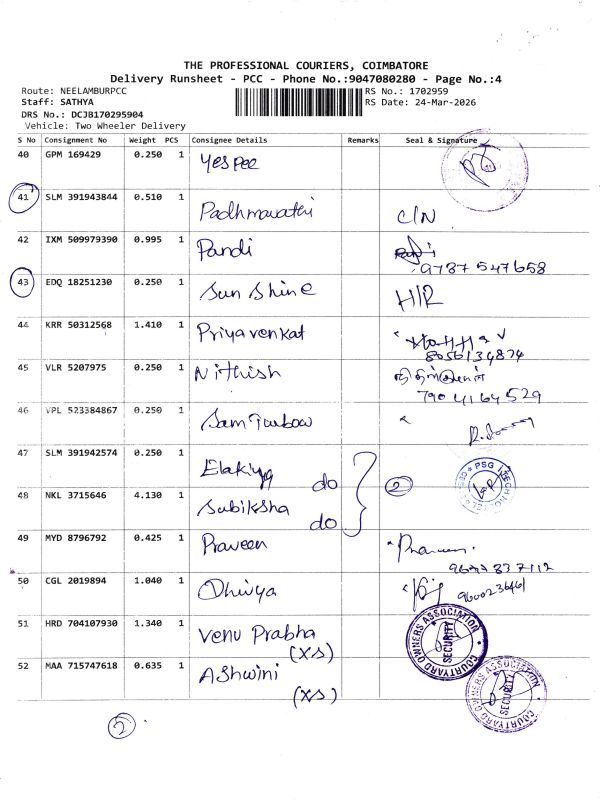 THE PROFESSIONAL COURIERS, COIMBATORE
Delivery Runsheet - PCC - Phone No.:9047080280 - Page No.:4
Route: NEELAMBURPCC RS No.: 1702959
Staff: SATHYA RS Date: 24-Mar-2026
DRS No.: DCJB170295904
Vehicle: Two Wheeler Delivery
S No Consignment No Weight PCS Consignee Details Remarks Seal & Signature
40 GPM 169429 0.250 1 Yespee
41 SLM 391943844 0.510 1 Padhmavathi C/N
42 IXM 509979390 0.995 1 Pandi
9787547658
43 EDQ 18251230 0.250 1 Sun Shine H/R
44 KRR 50312568 1.410 1 Priyavenkat
8056134874
45 VLR 5207975 0.250 1 Nithish
7904164529
46 VPL 523384867 0.250 1
47 SLM 391942574 0.250 1 Elakiya do 2 PSG
48 NKL 3715646 4.130 1 Subiksha do
49 MYD 8796792 0.425 1 Praveen
50 CGL 2019894 1.040 1 Dhivya
51 HRD 704107930 1.340 1 Venu Prabha (XS) COURTYARD OWNERS ASSOCIATION SECURITY
52 MAA 715747618 0.635 1 Ashwini (XS) COURTYARD OWNERS ASSOCIATION SECURITY
2